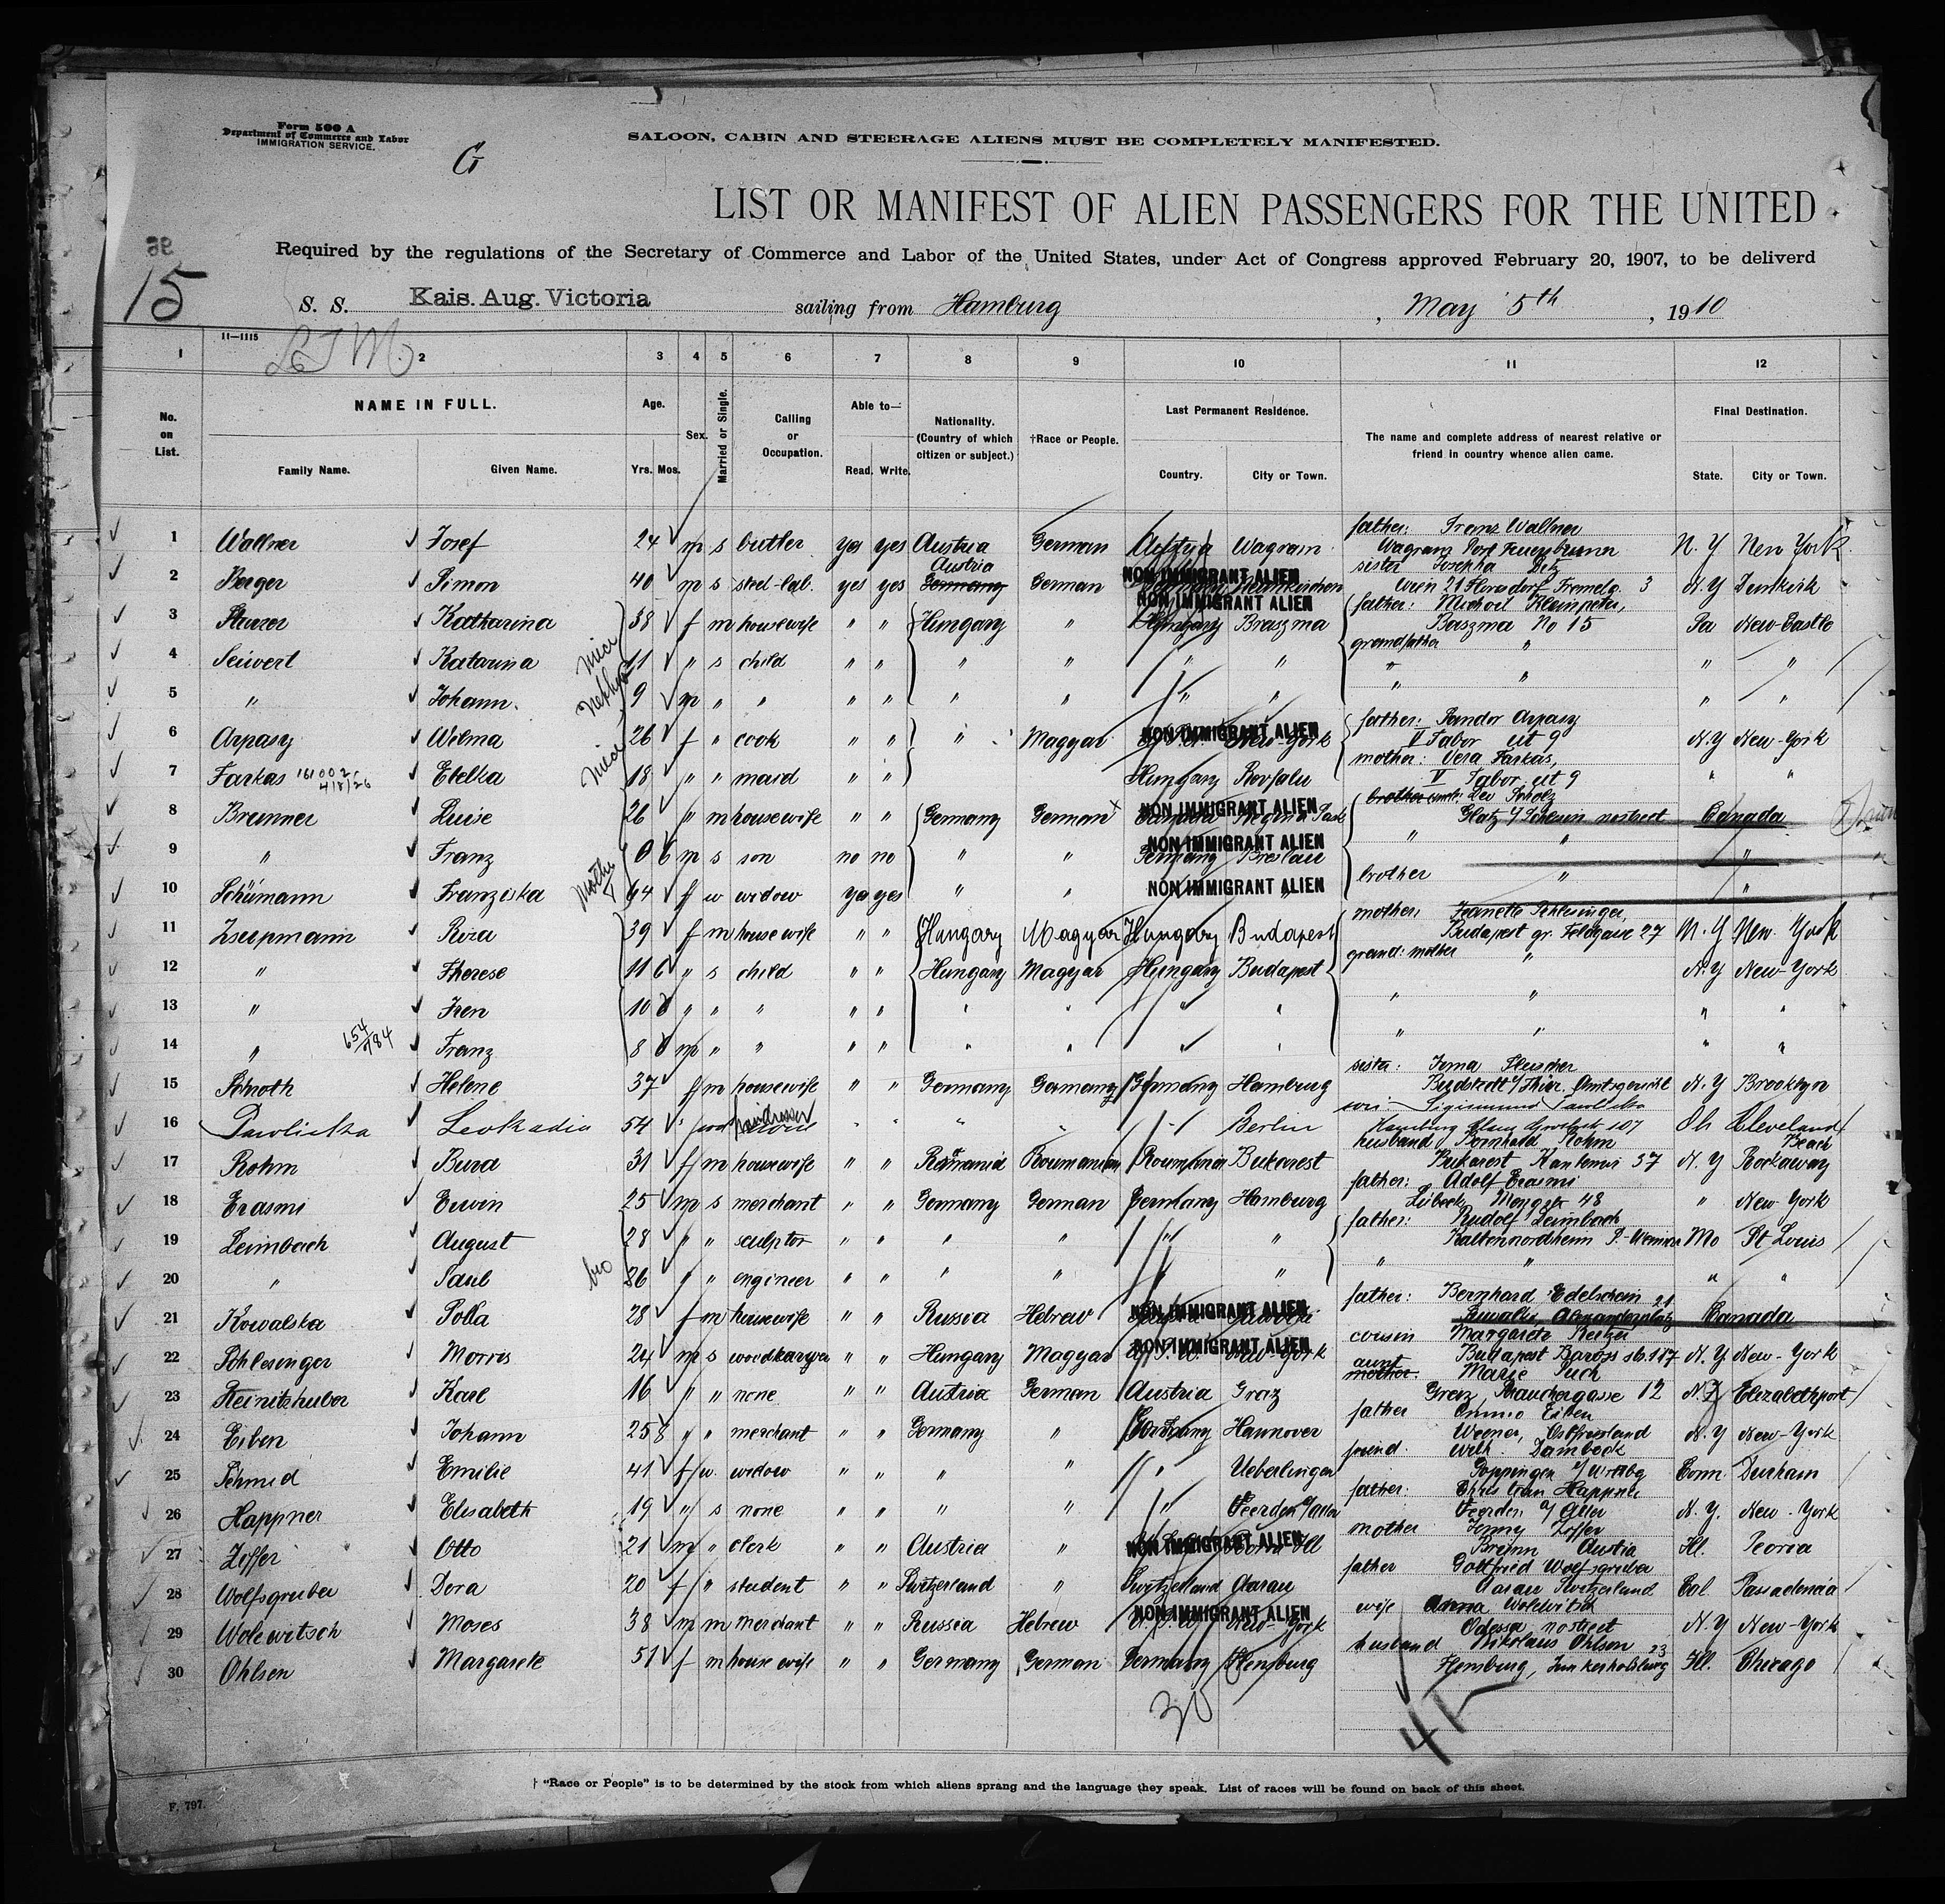 Form 500 A
Department of Commerce and Labor
IMMIGRATION SERVICE.
G
SALOON, CABIN AND STEERAGE ALIENS MUST BE COMPLETELY MANIFESTED.
LIST OR MANIFEST OF ALIEN PASSENGERS FOR THE UNITED
Required by the regulations of the Secretary of Commerce and Labor of the United States, under Act of Congress approved February 20, 1907, to be deliverd
15
S. S. Kais. Aug. Victoria sailing from Hamburg, May 5th, 1910
11—1115
1 2 3 4 5 6 7 8 9 10 11 12
No. on List.
NAME IN FULL.
Family Name. Given Name.
Age.
Yrs. Mos.
Sex.
Married or Single.
Calling or Occupation.
Able to—
Read. Write.
Nationality. (Country of which citizen or subject.)
†Race or People.
Last Permanent Residence.
Country. City or Town.
The name and complete address of nearest relative or friend in country whence alien came.
Final Destination.
State. City or Town.
1 Wallner Josef 24 m s butler yes yes Austria German Austria Wagram father: Franz Wallner Wagram N.Y New York
2 Berger Simon 40 m s steel-lab. yes yes Austria Germany German NON IMMIGRANT ALIEN sister 3 N.Y Dunkirk
3 Katharina 38 f m housewife " " Hungary " NON IMMIGRANT ALIEN Hungary father: Michael No 15 Pa New-Castle
4 Seiwert Katarina 11 " s child " " " " " " grandfather " " "
5 " Johann 9 m " " " " " " " " " " " "
6 Arpasy Wilma 26 f " cook " " " Magyar NON IMMIGRANT ALIEN New-York father: Sandor Arpasy Tabor ut 9 N.Y New-York
7 Farkas 161002 4/8/26 Etelka 18 " " maid " " Hungary mother: Vera Farkas, V Tabor ut 9 " "
8 Brunner Luise 26 " m housewife " " Germany German NON IMMIGRANT ALIEN Canada Regina Sask brother Canada
9 " Franz 0 6 m s son no no " " NON IMMIGRANT ALIEN Germany Breslau " " "
10 Schümann Franziska 64 f w widow yes yes " " NON IMMIGRANT ALIEN brother " "
11 Zseepmann Roza 39 f m housewife " " Hungary Magyar Hungary Budapest mother: Jeanette Schlesinger, Budapest gr. Feldgasse 27 N.Y New York
12 " Therese 11 6 " s child " " Hungary Magyar Hungary Budapest grand: mother " N.Y New-York
13 " Iren 10 " " " " " " " " " " " " "
14 " 654/784 Franz 8 m " " " " " " " " " " " "
15 Helene 37 f m housewife " " Germany Germany Germany Hamburg sister: Irma Fleischer N.Y Brooklyn
16 Pawlicka Leokadia 54 hairdresser " " " " " Berlin Sigismund Pawlicka Hamburg 107 Oh Cleveland
17 Rohm 31 f m housewife " " Romania Roumanian Roumania Bukarest husband Bernhard Rohm Bukarest 37 N.Y Rockaway Beach
18 Erasmi Erwin 25 m s merchant " " Germany German Germany Hamburg father: Adolf Erasmi Lübeck Mengstr 48 " New York
19 Leimbach August 28 " " sculptor " " " " " " father: Rudolf Leimbach Kaltennordheim Mo St Louis
20 " Paul 26 " " engineer " " " " " " " " " "
21 Kowalska Polla 28 f m housewife " " Russia Hebrew NON IMMIGRANT ALIEN father: Bernhard Edelschein 21 Suwalki, Alexanderplatz Canada
22 Schlesinger Morris 24 m s woodkarver " " Hungary Magyar NON IMMIGRANT ALIEN New-York cousin Margarete Budapest Baross 117 N.Y New-York
23 Steinitzhuber Karl 16 " " none " " Austria German Austria Graz aunt mother: Marie Puch Graz 12 N.J Elizabethport
24 Eiben Johann 25 8 " " merchant " " Germany " Germany Hannover father Onnno Eiben Weener, Ostfriesland N.Y New-York
25 Schmid Emilie 41 f w. widow " " " " " Ueberlingen friend. Wilh. Dambeck Göppingen Conn Durham
26 Happner Elisabeth 19 " s none " " " " " father: Christian Happner Veerden a/ Aller N.Y. New-York
27 Ziffer Otto 21 m " clerk " " Austria " NON IMMIGRANT ALIEN Peoria Ill mother Jenny Ziffer Brünn Austia Ill. Peoria
28 Wolfsgruber Dora 20 f " student " " Switzerland " Switzerland Aarau father Gottfried Wolfsgruber Aarau Switzerland Cal. Passadena
29 Wolewitsch Moses 38 m m merchant " " Russia Hebrew NON IMMIGRANT ALIEN New-York wife Anna Wolewitsch Odessa no street N.Y New-York
30 Ohlsen Margarete 51 f m housewife " " Germany German Germany Flensburg husband Nikolaus Ohlsen 23 Flensburg, Ill. Chicago
30
† "Race or People" is to be determined by the stock from which aliens sprang and the language they speak. List of races will be found on back of this sheet.
F. 797.